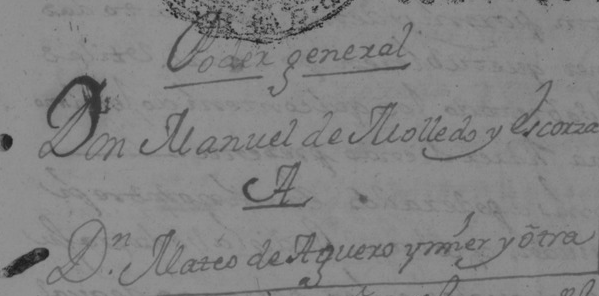 Poder general
Don Manuel de Molledo y escorza
A
Dn. Mateo de Aguero y mẽr y õtra